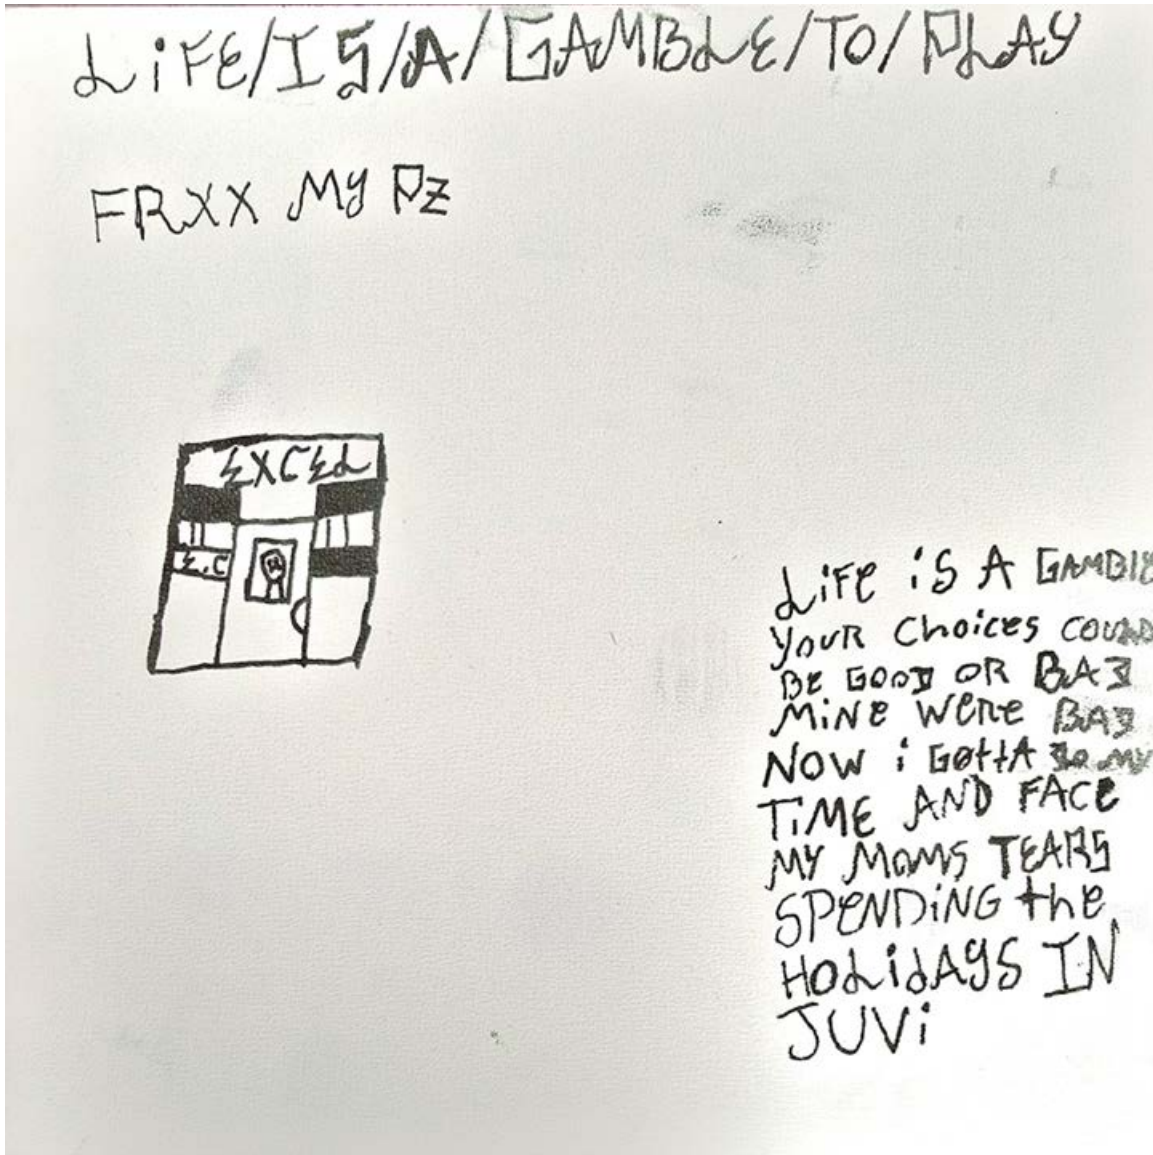 LiFE/IS/A/GAMBLE/TO/PLAY
FRXX MY PZ
EXCEL
E.C
LiFe iS A GAMBlE
YOUR CHoiCeS COULD
BE GOOD OR BAD
MiNe WeRe BAD
NOW i GOttA DO MY
TiME AND FACE
MY MOMS TEARS
SPENDiNG the
HOLidAYS IN
JUVi